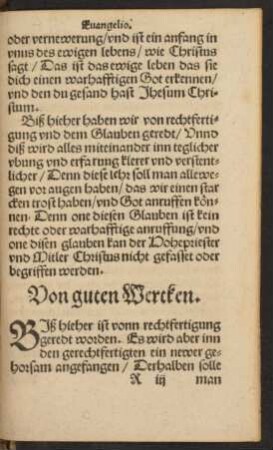 Euangelio.
oder vernewerung/vnd ist ein anfang in
vnns des ewigen lebens/wie Christus
sagt/Das ist das ewige leben das sie
dich einen warhafftigen Got erkennen/
vnd den du gesand hast Jhesum Chri-
stum.
Biß hieher haben wir von rechtferti-
gung vnd dem Glauben geredt/Vnnd
diß wird alles miteinander inn teglicher
vbung vnd erfarung kleret vnd verstent-
licher/Denn diese lehr soll man allewe-
gen vor augen haben/das wir einen star
cken trost haben/vnd Got anruffen kön-
nen. Denn one diesen Glauben ist kein
rechte oder warhafftige anruffung/vnd
one disen glauben kan der Hohepriester
vnd Mitler Christus nicht gefasset oder
begriffen werden.
Von guten Wercken.
BIß hieher ist vonn rechtfertigung
geredt worden. Es wird aber inn
den gerechtfertigten ein newer ge-
horsam angefangen/Derhalben solle
R iij man